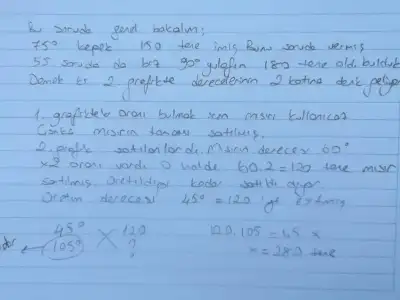 Bu soruda genel bakalım;
75° kepek 150 tane imiş Bunu soruda vermiş
55 soruda da biz 90° gulafın 180 tane oldu bulduk
Demek ki 2 grafikte derecelerinin 2 katına denk geliyor
1. grafikteki oranı bulmak için mısırı kullanıcaz
Çünkü mısırın tanesi satılmış.
2. grafik satılanlardı. Mısırın derecesi 60°
x2 oranı vardı O halde 60.2=120 tane mısır
satılmış üretildiği kadar satıldı diyor
Üretim derecesi 45° = 120 'ye eşitmiş
45° 120
105° ?
120.105 = 45 x
x = 280 tane